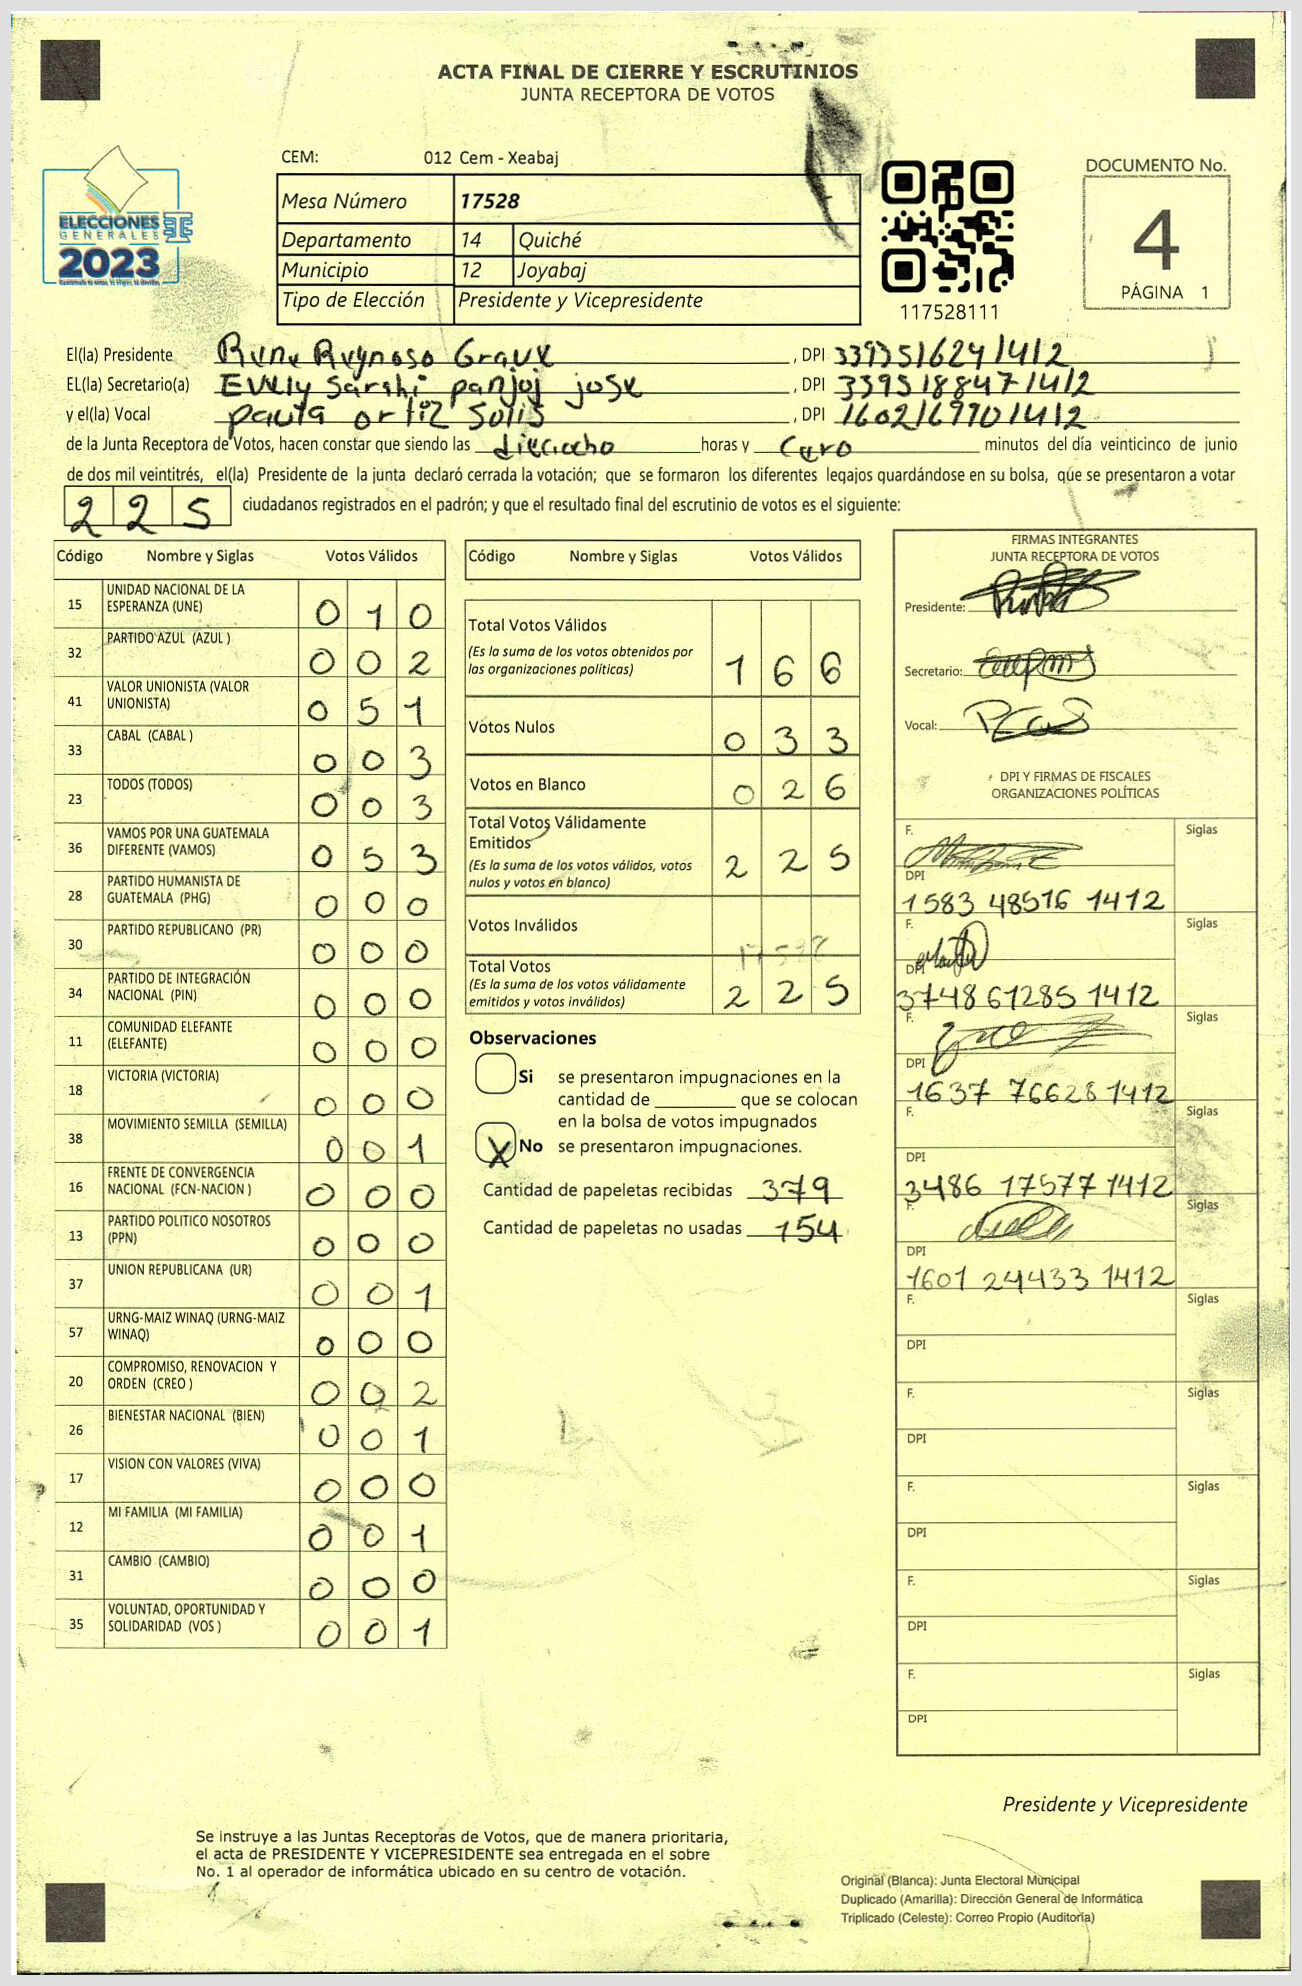 ACTA FINAL DE CIERRE Y ESCRUTINIOS
JUNTA RECEPTORA DE VOTOS
CEM: 012 Cem - Xeabaj
Mesa Número 17528
Departamento 14 Quiché
Municipio 12 Joyabaj
Tipo de Elección Presidente y Vicepresidente
ELECCIONES
GENERALES
2023
117528111
DOCUMENTO No.
4
PÁGINA 1
El(la) Presidente Reynoso , DPI 3393516241412
EL(la) Secretario(a) Evely Sarshi panjoj jose , DPI 3395188471412
y el(la) Vocal paula ortiz Solis , DPI 1602169701412
de la Junta Receptora de Votos, hacen constar que siendo las dieciocho horas y cero minutos del día veinticinco de junio
de dos mil veintitrés, el(la) Presidente de la junta declaró cerrada la votación; que se formaron los diferentes legajos guardándose en su bolsa, que se presentaron a votar
225 ciudadanos registrados en el padrón; y que el resultado final del escrutinio de votos es el siguiente:
Código Nombre y Siglas Votos Válidos
15 UNIDAD NACIONAL DE LA ESPERANZA (UNE) 0 1 0
32 PARTIDO AZUL (AZUL ) 0 0 2
41 VALOR UNIONISTA (VALOR UNIONISTA) 0 5 1
33 CABAL (CABAL ) 0 0 3
23 TODOS (TODOS) 0 0 3
36 VAMOS POR UNA GUATEMALA DIFERENTE (VAMOS) 0 5 3
28 PARTIDO HUMANISTA DE GUATEMALA (PHG) 0 0 0
30 PARTIDO REPUBLICANO (PR) 0 0 0
34 PARTIDO DE INTEGRACIÓN NACIONAL (PIN) 0 0 0
11 COMUNIDAD ELEFANTE (ELEFANTE) 0 0 0
18 VICTORIA (VICTORIA) 0 0 0
38 MOVIMIENTO SEMILLA (SEMILLA) 0 0 1
16 FRENTE DE CONVERGENCIA NACIONAL (FCN-NACION ) 0 0 0
13 PARTIDO POLITICO NOSOTROS (PPN) 0 0 0
37 UNION REPUBLICANA (UR) 0 0 1
57 URNG-MAIZ WINAQ (URNG-MAIZ WINAQ) 0 0 0
20 COMPROMISO, RENOVACION Y ORDEN (CREO ) 0 0 2
26 BIENESTAR NACIONAL (BIEN) 0 0 1
17 VISION CON VALORES (VIVA) 0 0 0
12 MI FAMILIA (MI FAMILIA) 0 0 1
31 CAMBIO (CAMBIO) 0 0 0
35 VOLUNTAD, OPORTUNIDAD Y SOLIDARIDAD (VOS ) 0 0 1
Código Nombre y Siglas Votos Válidos
Total Votos Válidos
(Es la suma de los votos obtenidos por
las organizaciones políticas) 1 6 6
Votos Nulos 0 3 3
Votos en Blanco 0 2 6
Total Votos Válidamente
Emitidos
(Es la suma de los votos válidos, votos
nulos y votos en blanco) 2 2 5
Votos Inválidos
Total Votos
(Es la suma de los votos válidamente
emitidos y votos inválidos) 2 2 5
Observaciones
Si se presentaron impugnaciones en la
cantidad de ________ que se colocan
en la bolsa de votos impugnados
X No se presentaron impugnaciones.
Cantidad de papeletas recibidas 379
Cantidad de papeletas no usadas 154
FIRMAS INTEGRANTES
JUNTA RECEPTORA DE VOTOS
Presidente:
Secretario:
Vocal:
DPI Y FIRMAS DE FISCALES
ORGANIZACIONES POLÍTICAS
F. Siglas
DPI
1583 48516 1412
F. Siglas
DPI
3748 61285 1412
F. Siglas
DPI
1637 76628 1412
F. Siglas
DPI
3486 17577 1412
F. Siglas
DPI
1601 24433 1412
F. Siglas
DPI
F. Siglas
DPI
F. Siglas
DPI
F. Siglas
DPI
F. Siglas
DPI
Presidente y Vicepresidente
Se instruye a las Juntas Receptoras de Votos, que de manera prioritaria,
el acta de PRESIDENTE Y VICEPRESIDENTE sea entregada en el sobre
No. 1 al operador de informática ubicado en su centro de votación.
Original (Blanca): Junta Electoral Municipal
Duplicado (Amarilla): Dirección General de Informática
Triplicado (Celeste): Correo Propio (Auditoría)